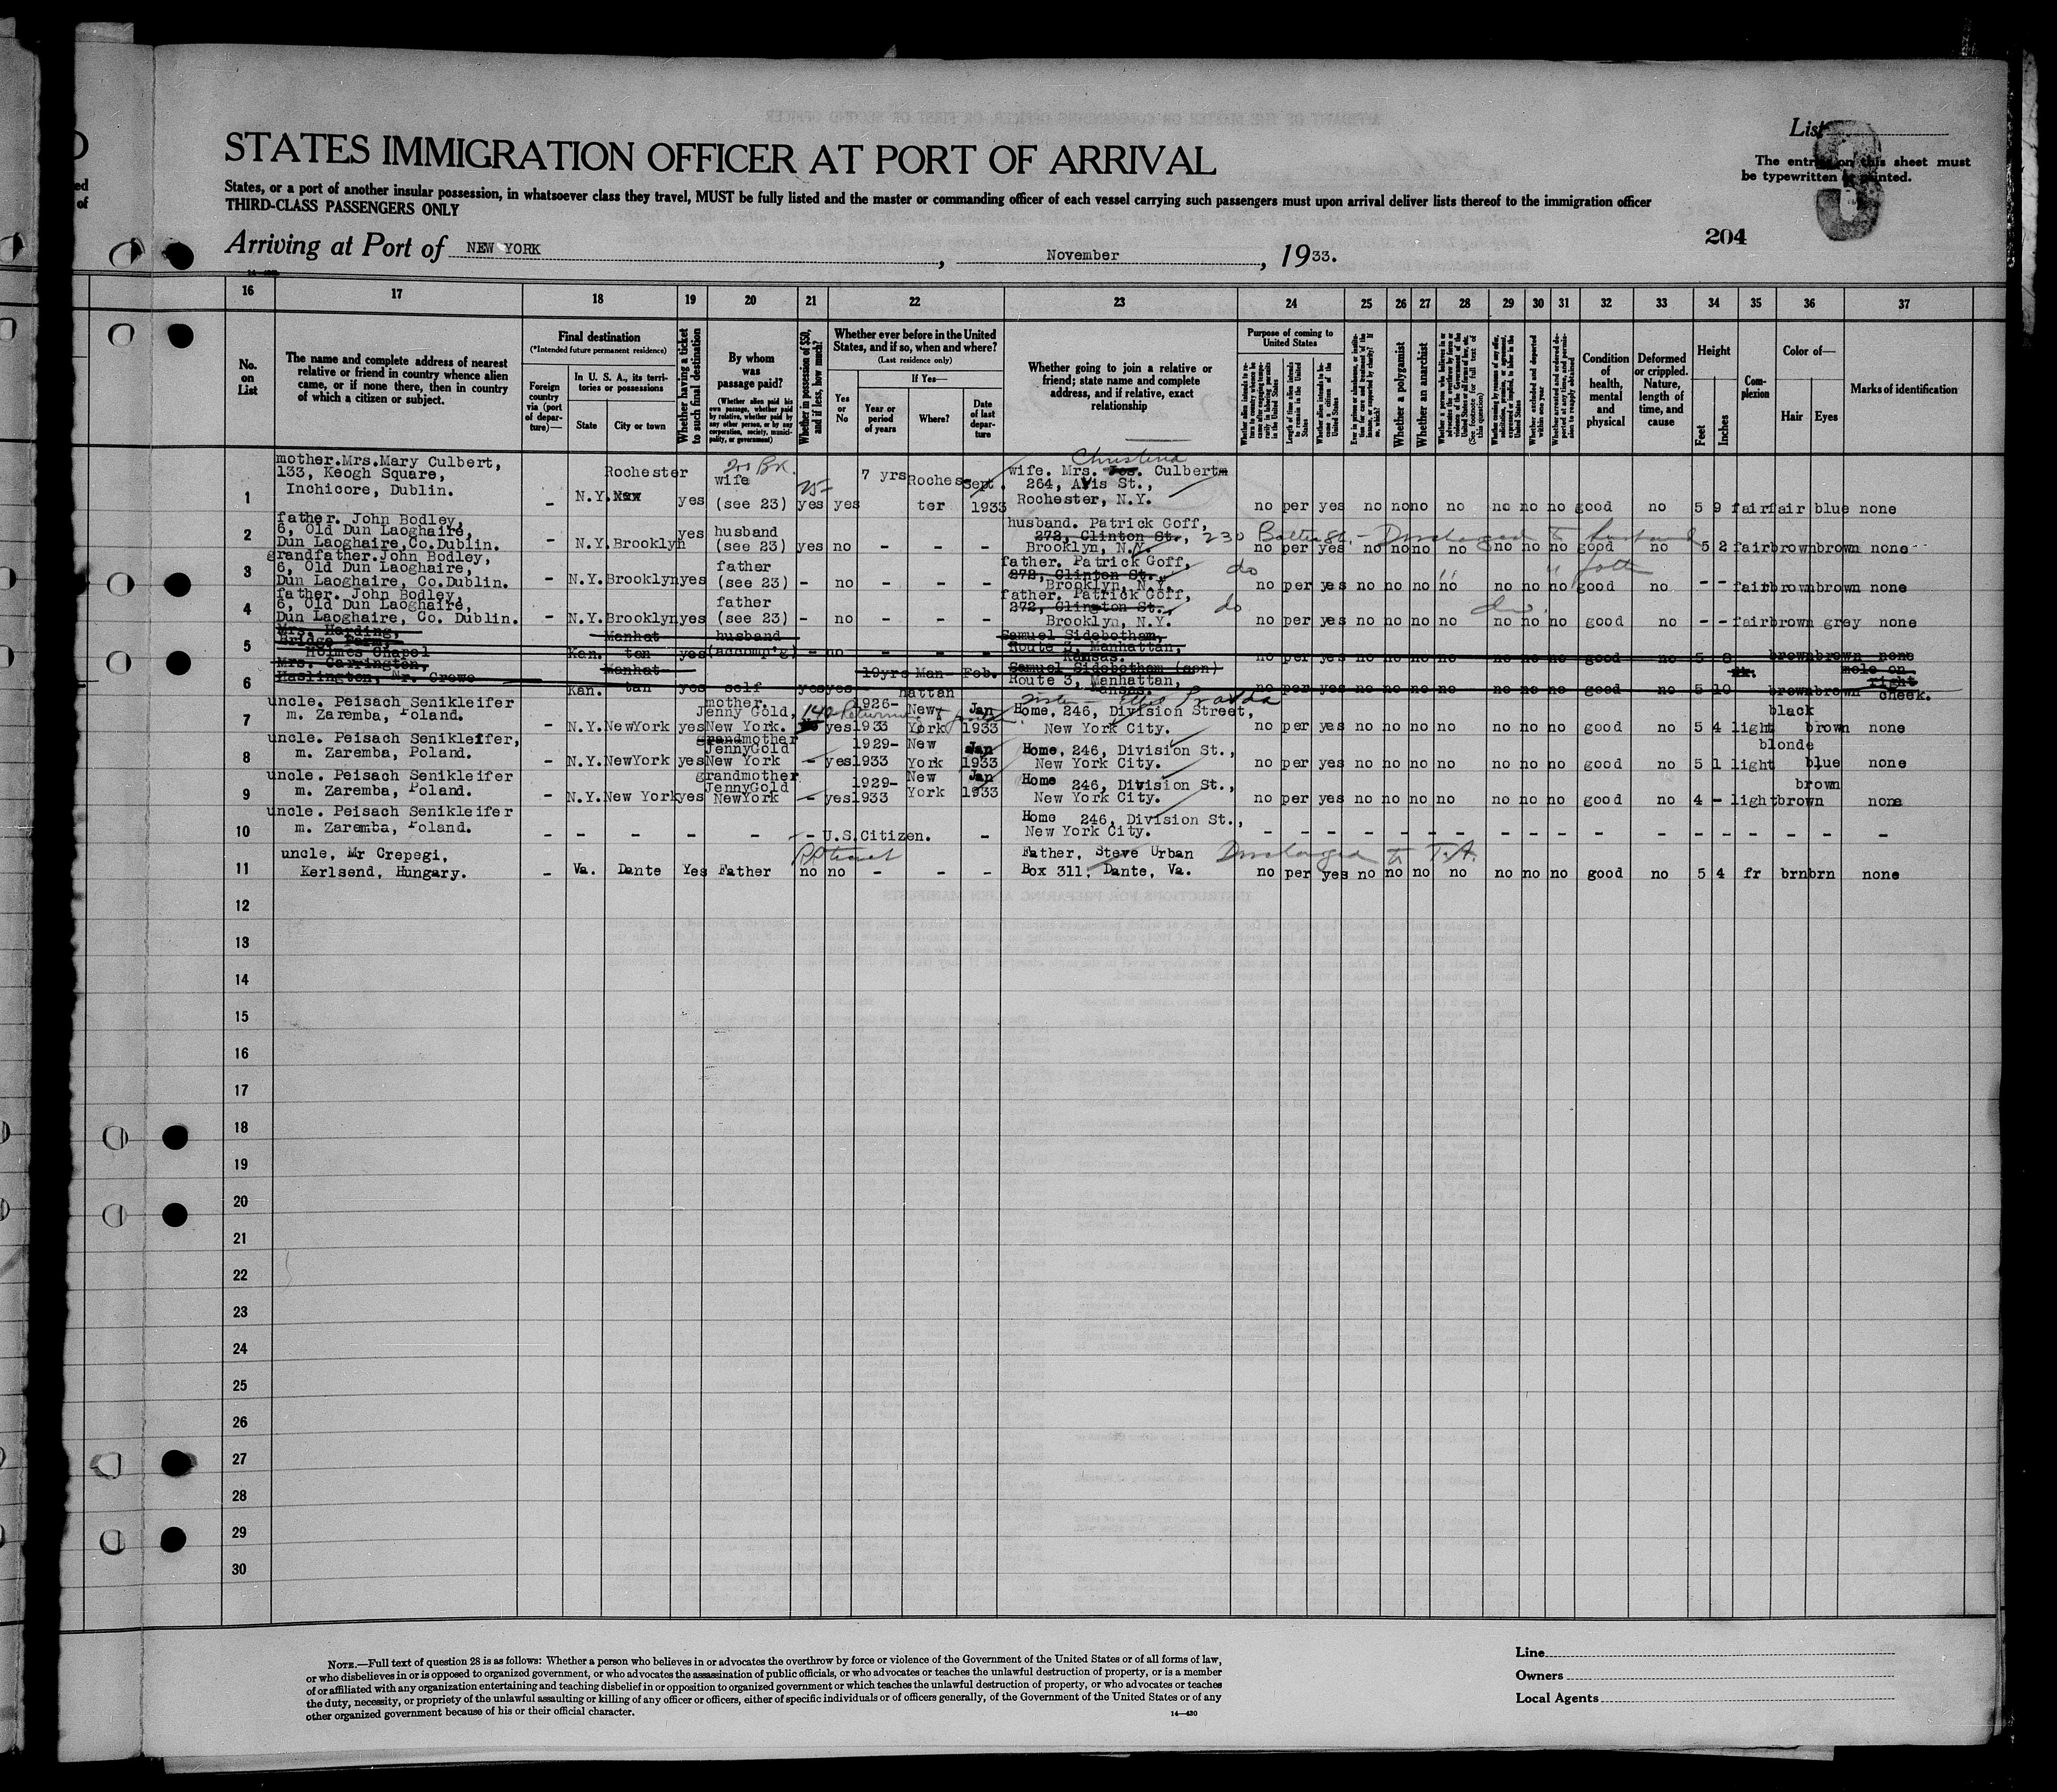 List
The entries on this sheet must
be typewritten or printed.
STATES IMMIGRATION OFFICER AT PORT OF ARRIVAL
States, or a port of another insular possession, in whatsoever class they travel, MUST be fully listed and the master or commanding officer of each vessel carrying such passengers must upon arrival deliver lists thereof to the immigration officer
THIRD-CLASS PASSENGERS ONLY
204
Arriving at Port of NEW YORK, November, 1933.
16 17 18 19 20 21 22 23 24 25 26 27 28 29 30 31 32 33 34 35 36 37
No. on List
The name and complete address of nearest relative or friend in country whence alien came, or if none there, then in country of which a citizen or subject.
Final destination
(*Intended future permanent residence)
Foreign country via (port of departure)—
In U. S. A., its territories or possessions
State
City or town
Whether having a ticket to such final destination
By whom was passage paid?
(Whether alien paid his own passage, whether paid by relative, whether paid by any other person, or by any corporation, society, municipality, or government)
Whether in possession of $50, and if less, how much?
Whether ever before in the United States, and if so, when and where?
(Last residence only)
Yes or No
If Yes—
Year or period of years
Where?
Date of last departure
Whether going to join a relative or friend; state name and complete address, and if relative, exact relationship
Purpose of coming to United States
Whether a polygamist
Whether an anarchist
Condition of health, mental and physical
Deformed or crippled. Nature, length of time, and cause
Height
Feet
Inches
Complexion
Color of—
Hair
Eyes
Marks of identification
1 mother.Mrs.Mary Culbert, 133, Keogh Square, Inchicore, Dublin. - N.Y. Rochester yes wife (see 23) yes yes 7 yrs Rochester Sept. 1933 wife. Mrs. Christina Culbert 264, Avis St., Rochester, N.Y. no per yes no no no no no no no good no 5 9 fair fair blue none
2 father. John Bodley, 6, Old Dun Laoghaire, Dun Laoghaire,Co.Dublin. - N.Y. Brooklyn yes husband (see 23) yes no - - - husband. Patrick Goff, 272, Clinton St., Brooklyn, N.Y. 230 Baltic St. - Discharged to husband no per yes no no no no no no no good no 5 2 fair brown brown none
3 grandfather.John Bodley, 6, Old Dun Laoghaire, Dun Laoghaire, Co.Dublin. - N.Y. Brooklyn yes father (see 23) - no - - - father. Patrick Goff, 272, Clinton St., Brooklyn, N.Y. do no per yes no no no no no no no good no - - fair brown brown none
4 father. John Bodley, 6, Old Dun Laoghaire, Dun Laoghaire, Co. Dublin. - N.Y. Brooklyn yes father (see 23) - no - - - father. Patrick Goff, 272, Clington St., Brooklyn, N.Y. do no per yes no no no no no no no good no - - fair brown grey none
5 Mrs. Harding, Bridge Farm, Holmes Chapel Kan. Manhattan yes husband (accomp'g) - no - - - Samuel Sidebotham, Route 3, Manhattan, Kansas. no per yes no no no no no no no good no 5 8 brown brown none
6 Mrs. Carrington, Haslington, Nr. Crewe Kan. Manhattan yes self yes yes 19yrs Manhattan Feb. Samuel Sidebotham (son) Route 3, Manhattan, Kansas. no per yes no no no no no no no good no 5 10 fr. brown brown mole on right cheek.
7 uncle. Peisach Senikleifer m. Zaremba, Poland. - N.Y. NewYork yes mother. Jenny Gold, New York. 140 yes 1926-1933 New York Jan 1933 Home, 246, Division Street, New York City. no per yes no no no no no no no good no 5 4 light black brown none
8 uncle. Peisach Senikleifer, m. Zaremba, Poland. - N.Y. NewYork yes grandmother JennyGold New York - yes 1929-1933 New York Jan 1933 Home, 246, Division St., New York City. no per yes no no no no no no no good no 5 1 light blonde blue none
9 uncle. Peisach Senikleifer m. Zaremba, Poland. - N.Y. New York yes grandmother JennyGold NewYork - yes 1929-1933 New York Jan 1933 Home 246, Division St., New York City. no per yes no no no no no no no good no 4 - light brown brown none
10 uncle. Peisach Senikleifer m. Zaremba, Poland. - - - - - - U.S.Citizen. - Home 246, Division St., New York City. - - - - - - - - - - - - - - - - - -
11 uncle, Mr Crepegi, Kerlsend, Hungary. - Va. Dante Yes Father no no - - - Father, Steve Urban Box 311, Dante, Va. Discharged to T.A. no per yes no no no no no no no good no 5 4 fr brn brn none
12
13
14
15
16
17
18
19
20
21
22
23
24
25
26
27
28
29
30
NOTE.—Full text of question 28 is as follows: Whether a person who believes in or advocates the overthrow by force or violence of the Government of the United States or of all forms of law,
or who disbelieves in or is opposed to organized government, or who advocates the assassination of public officials, or who advocates or teaches the unlawful destruction of property, or is a member
of or affiliated with any organization entertaining and teaching disbelief in or opposition to organized government or which teaches the unlawful destruction of property, or who advocates or teaches
the duty, necessity, or propriety of the unlawful assaulting or killing of any officer or officers, either of specific individuals or of officers generally, of the Government of the United States or of any
other organized government because of his or their official character.
14—430
Line
Owners
Local Agents